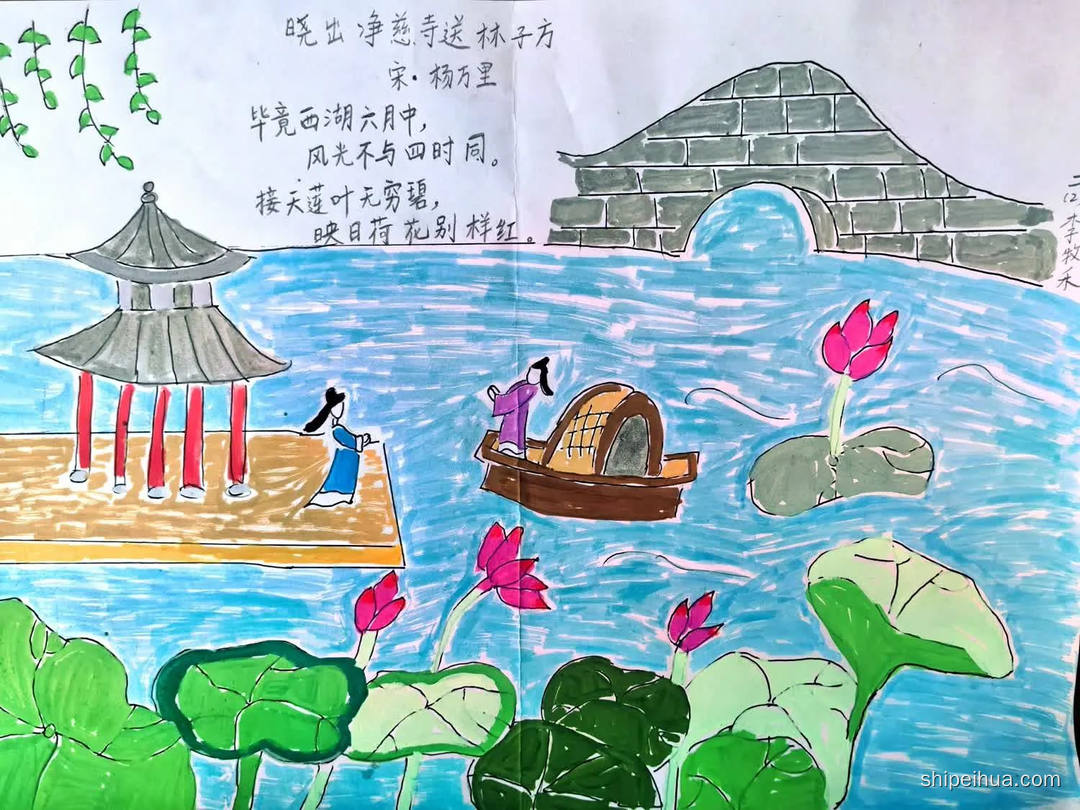 晓出净慈寺送林子方
宋·杨万里
毕竟西湖六月中，
风光不与四时同。
接天莲叶无穷碧，
映日荷花别样红。
二(2)李牧禾
shipeihua.com